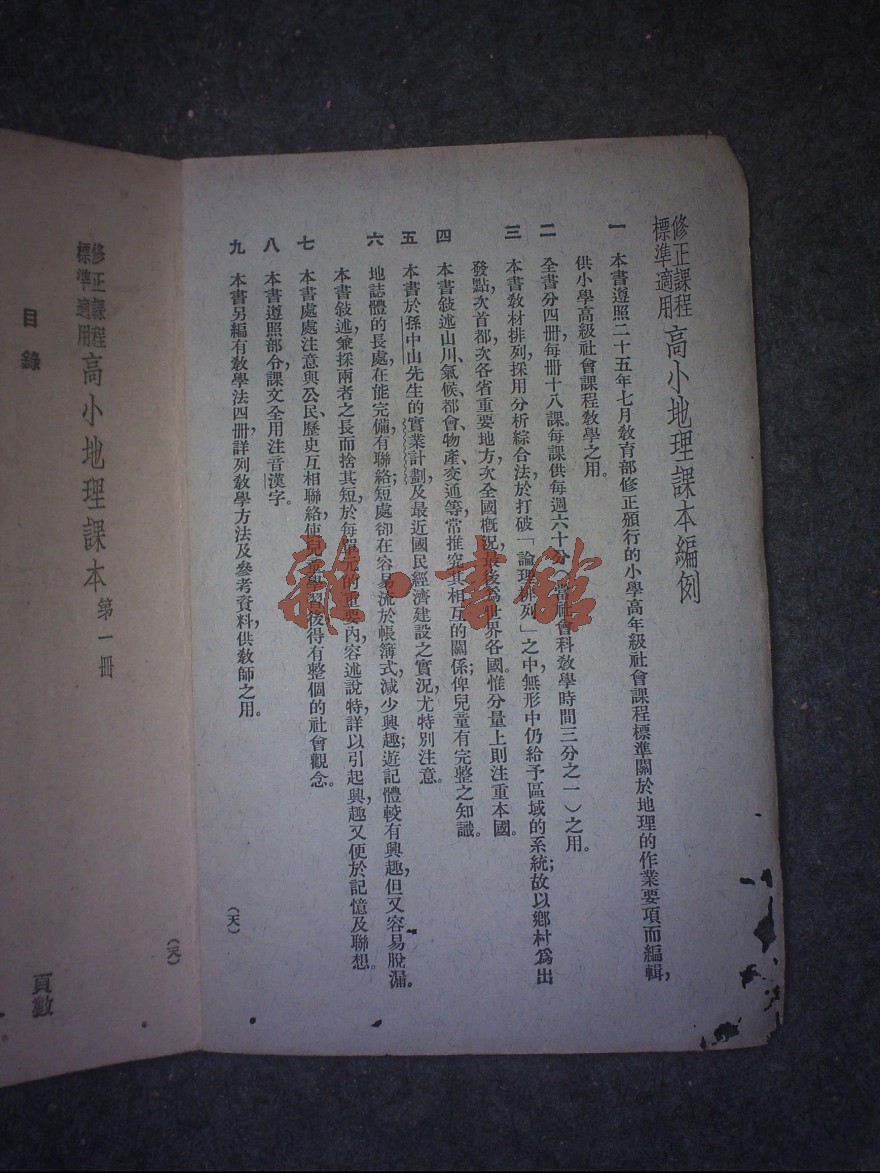 修正課程
標準適用
高小地理課本編例
一 本書遵照二十五年七月教育部修正頒行的小學高年級社會課程標準關於地理的作業要項而編輯,
供小學高級社會課程教學之用。
二 全書分四冊,每冊十八課。每課供每週六十分(當社會科教學時間三分之一)之用。
三 本書教材排列,採用分析綜合法,於打破「論理排列」之中,無形中仍給予區域的系統;故以鄉村爲出
發點,次首都,次各省重要地方,次全國概況,最後爲世界各國。惟分量上則注重本國。
四 本書敍述山川、氣候、都會、物產、交通等,常推究其相互的關係,俾兒童有完整之知識。
五 本書於孫中山先生的實業計劃及最近國民經濟建設之實況,尤特別注意。
六 地誌體的長處在能完備,有聯絡;短處卻在容易流於帳簿式,減少興趣;遊記體較有興趣,但又容易脫漏。
本書敍述,兼採兩者之長而捨其短,於每單元的重要內容,述說特詳,以引起興趣,又便於記憶及聯想。
七 本書處處注意與公民、歷史互相聯絡,使兒童學習後得有整個的社會觀念。
八 本書遵照部令,課文全用注音漢字。
九 本書另編有教學法四冊,詳列教學方法及參考資料,供教師之用。
(天)
修正課程
標準適用
高小地理課本 第一冊
(天)
目錄
頁數
雜·書館